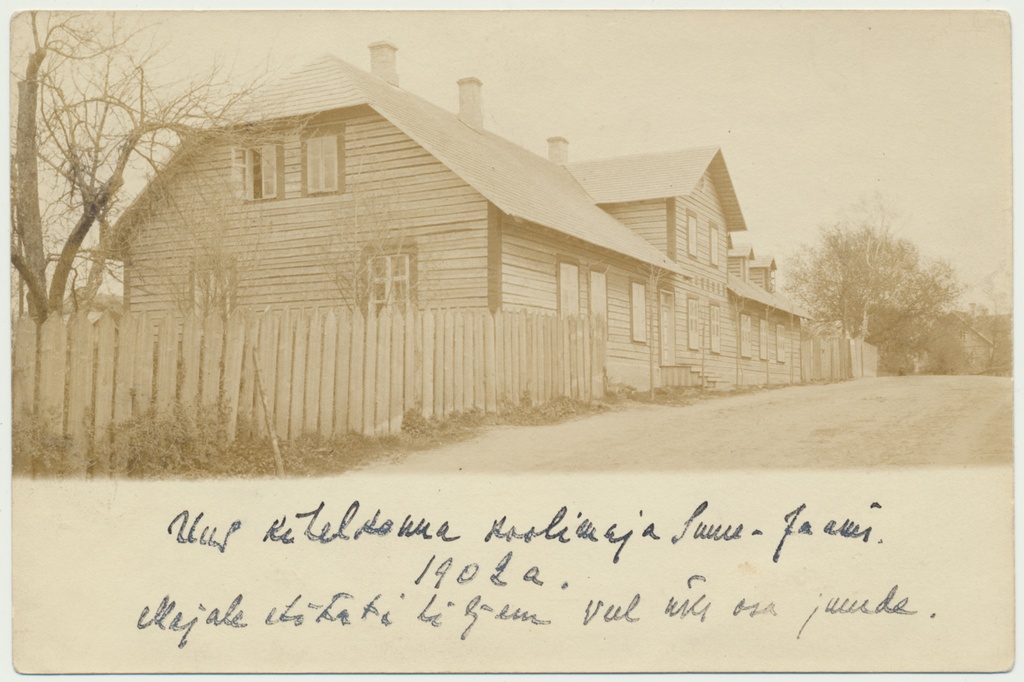 Uus kihelkonna koolimaja Suure-Jaanis.
1902 a.
Majale ehitati hiljem veel üks osa juurde.